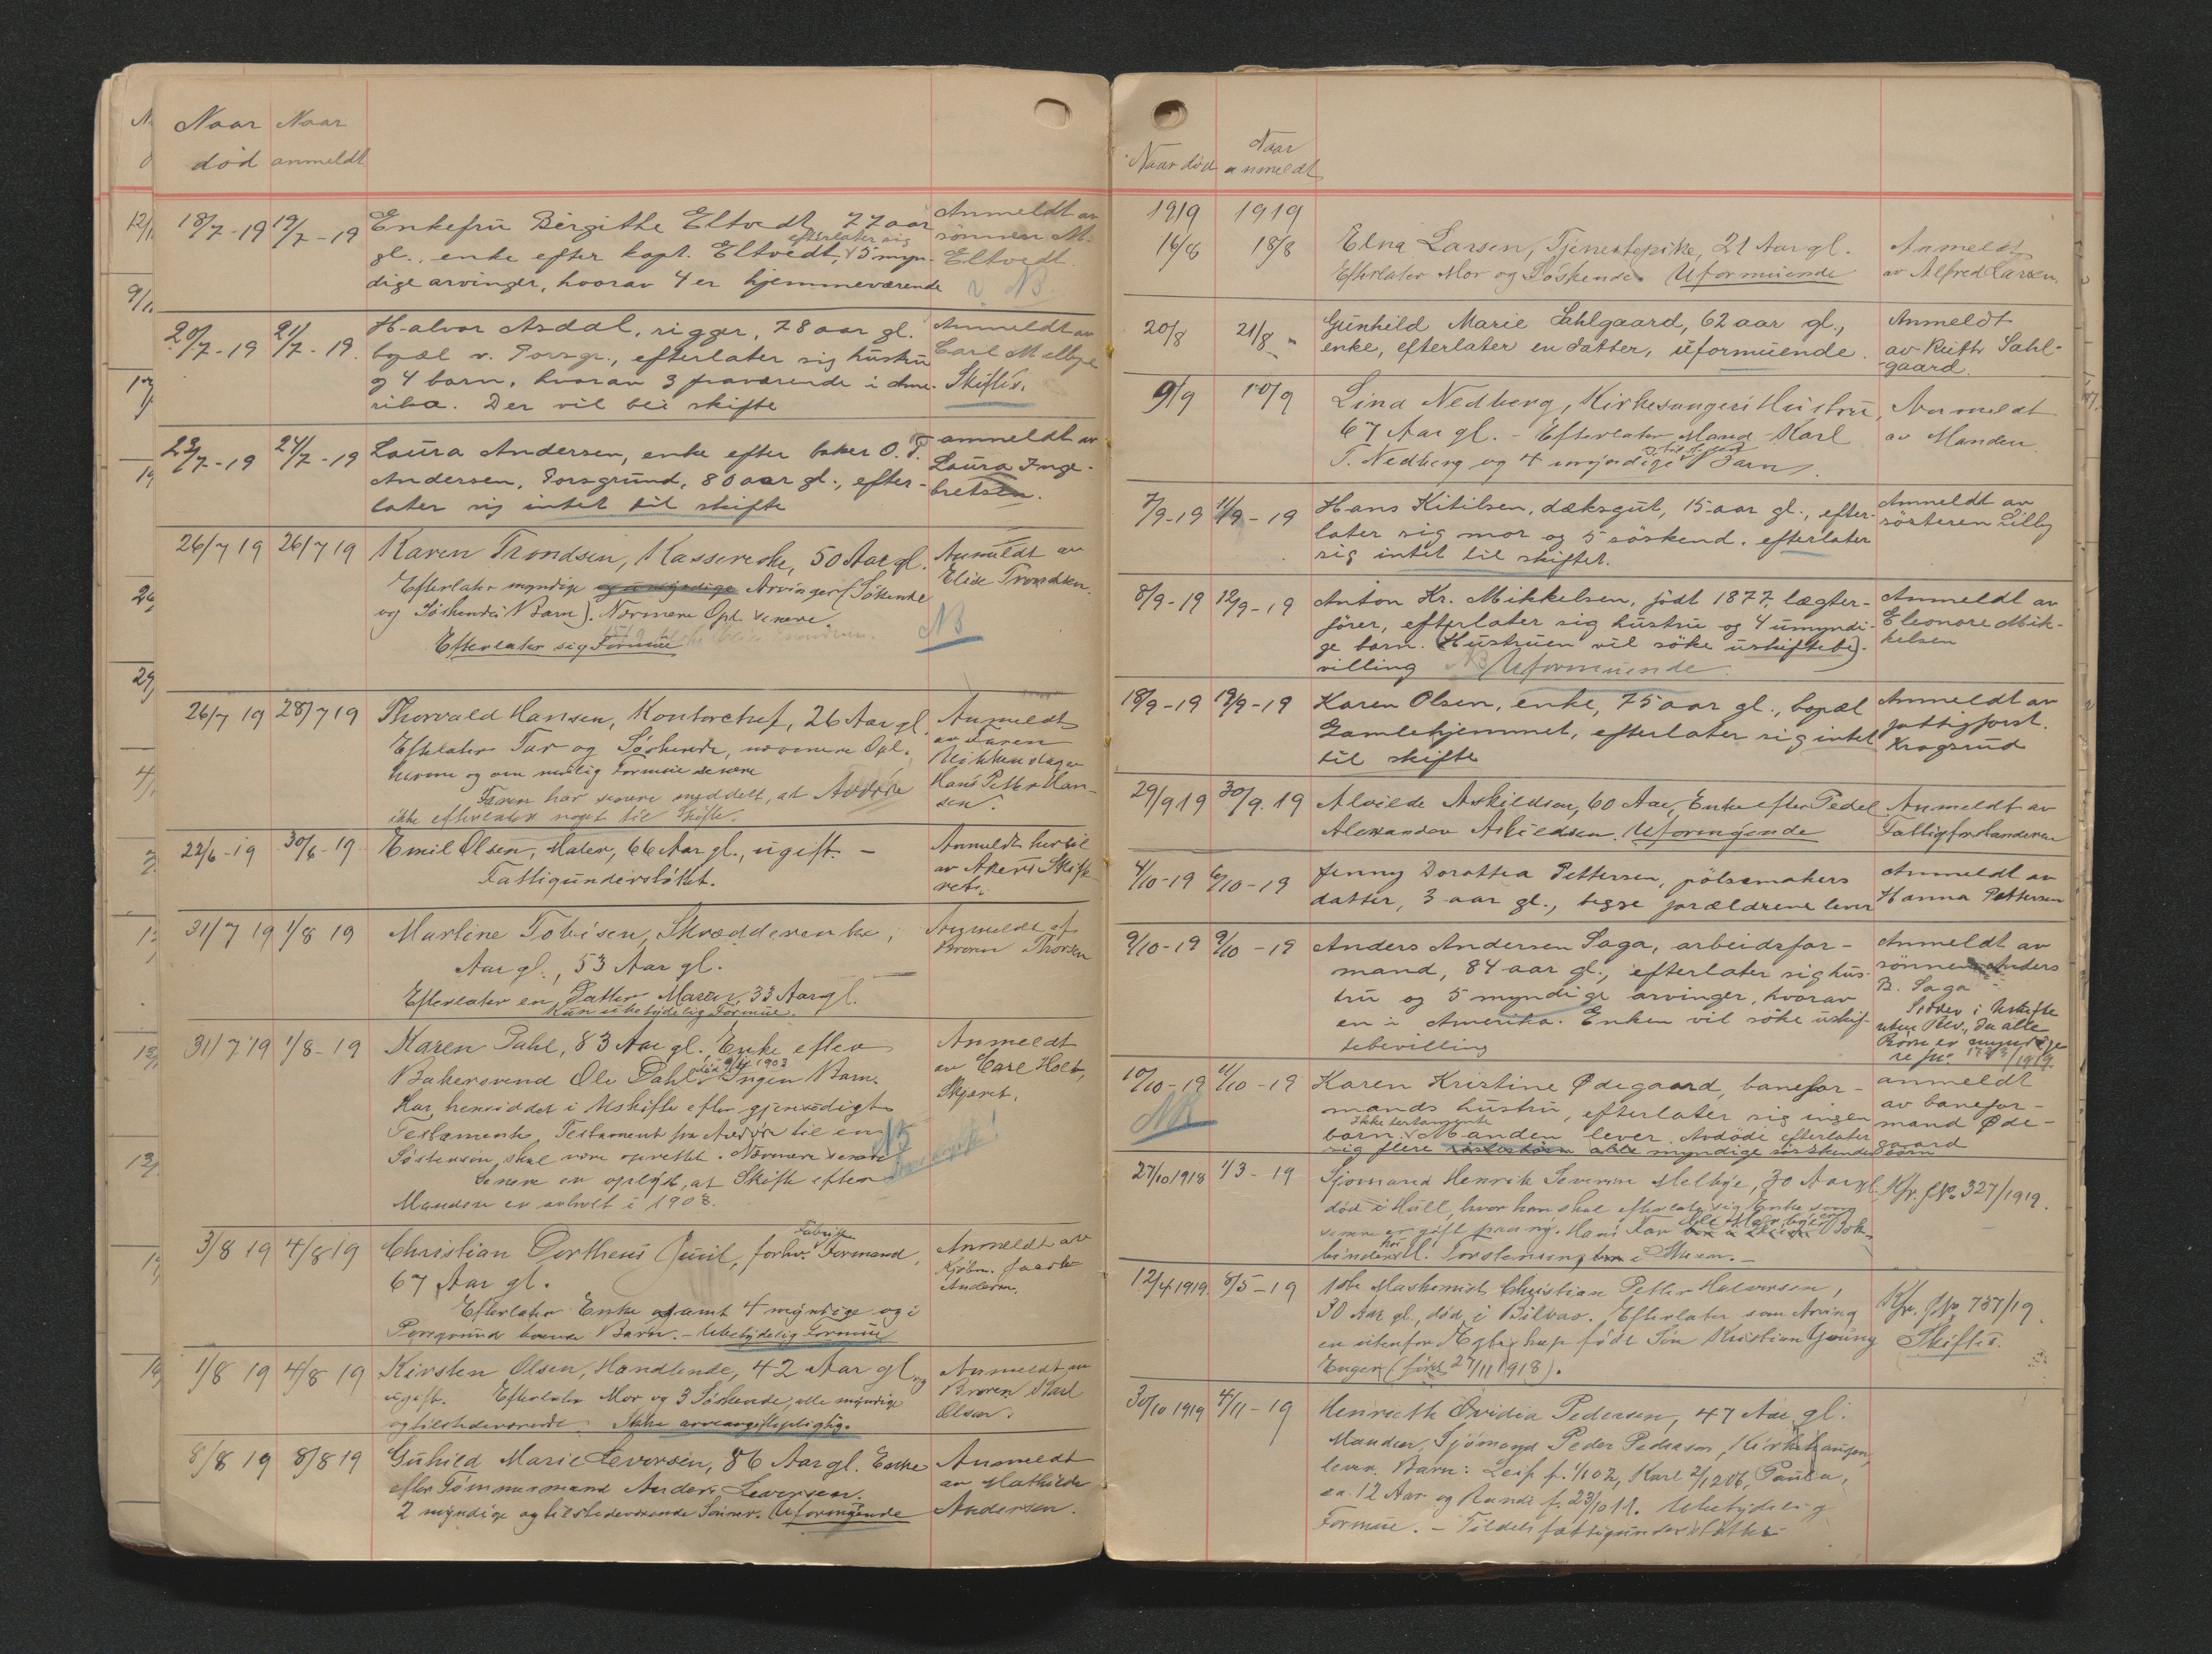 Naar Naar
død anmeldt
18/7-19 19/7-19 Enkefru Birgithe Eltvedt, 77 aar
gl., enke efter kapt. Eltvedt, efterlater sig 5 myn-
dige arvinger, hvorav 4 er hjemmeværende
Anmeldt av
sönnen M.
Eltvedt.
NB.
20/7-19 21/7-19. Halvor Asdal, rigger, 78 aar gl.
bopæl v. Porsgr., efterlater sig hustru
og 4 barn, hvorav 3 fraværende i Ame-
rika. Der vil bli skifte
Anmeldt av
Carl Melbye
Skiftes.
23/7-19 24/7-19 Laura Andersen, enke efter baker O. T.
Andersen, Porsgrund, 80 aar gl., efter-
later sig intet til skifte
anmeldt av
Laura Inge-
bretsen.
26/7 19 26/7 19 Karen Trondsen, Kasserske, 50 Aar gl.
Efterlater myndige og umyndige Arvinger (Söskende
og Söskendes Barn). Nærmere Opl. senere.
Efterlater sig Formue
Anmeldt av
Elise Trondsen.
NB
26/7 19 28/7 19 Thorvald Hansen, Kontorchef, 26 Aar gl.
Efterlater Far og Söskende, nærmere Opl.
herom og om mulig Formue senere
Faren har senere meddelt, at Avdöde
ikke efterlater noget til Skifte.
Anmeldt
av Faren
Blikkenslager
Hans Petter Han-
sen.
22/6-19 30/6-19 Emil Olsen, Maler, 66 Aar gl., ugift. -
Fattigunderstöttet.
Anmeldt hertil
av Akers Skifte-
ret.
31/7 19 1/8 19 Martine Tobisen, Skrædderenke,
Aar gl., 53 Aar gl.
Efterlater en Datter Maren, 33 Aar gl.
Kun ubetydelig Formue.
Anmeldt af
Broren Thorsen
31/7 19 1/8-19 Karen Dahl, 83 Aar gl., Enke efter
Bakersvend Ole Dahl, Ingen Barn.
Har hensiddet i Uskifte efter gjensidigt
Testamente. Testament fra Avdöde til en
Söstersön skal være oprettet. Nærmere senere
Senere er oplyst, at Skifte efter
Manden er avholt i 1903.
Anmeldt
av Carl Holt,
Skjøret.
NB
3/8 19 4/8 19 Christian Dortheus Juul, forhv. Fabrik Formand,
67 Aar gl.
Efterlater Enke samt 4 myndige og i
Porsgrund boende Barn. - Ubetydelig Formue
Anmeldt av
Kjöbm. Jacob
Andersen.
1/8 19 4/8 19 Kirsten Olsen, Handlende, 42 Aar gl og
ugift. Efterlater Mor og 3 Söskende, alle myndige
og tilstedeværende. Ikke arveavgiftspligtig.
Anmeldt av
Broren Karl
Olsen.
8/8 19 8/8 19 Guhild Marie Leversen, 86 Aar gl. Enke
efter Tömmermand Anders Leversen.
2 myndige og tilstedeværende Sönner. Uformuende
Anmeldt
av Mathilde
Andersen.
Naar död Naar anmeldt
1919 1919
16/8 18/8 Elna Larsen, Tjenestepike, 21 Aar gl.
Efterlater Mor og Söskende. Uformuende
Anmeldt
av Alfred Larsen.
20/8 21/8 Gunhild Marie Sahlgaard, 62 aar gl.,
enke, efterlater en datter, uformuende.
Anmeldt
av Ruth Sahl-
gaard.
9/9 10/9 Lina Nedberg, Kirkesangers Hustru,
67 Aar gl. - Efterlater Mand Karl
T. Nedberg og 4 myndige Barn.
Anmeldt
av Manden
7/9-19 11/9-19 Hans Kitilsen, dæksgut, 15 aar gl., efter-
later sig mor og 5 söskend. efterlater
sig intet til skiftet.
Anmeldt av
sösteren Lilly
8/9-19 12/9-19 Anton Kr. Mikkelsen, födt 1877, lægter-
förer, efterlater sig hustru og 4 umyndi-
ge barn. (Hustruen vil söke uskiftebe-
villing NB Uformuende.
Anmeldt av
Eleonore Mik-
kelsen
18/9-19 19/9-19 Karen Olsen, enke, 75 aar gl., bopæl
Gamlehjemmet, efterlater sig intet
til skifte
Anmeldt av
fattigforst.
Krogsrud
29/9 19 30/9. 19 Alvilde Askildsen, 60 Aar, Enke efter Pedel
Alexander Askildsen. Uformuende
Anmeldt av
Fattigforstanderen
4/10-19 6/10-19 Jenny Dorothea Pettersen, pölsemakers
datter, 3 aar gl., begge forældrene lever
Anmeldt av
Hanna Pettersen
9/10-19 9/10-19 Anders Andersen Saga, arbeidsfor-
mand, 84 aar gl., efterlater sig hus-
tru og 5 myndige arvinger, hvorav
en i Amerika. Enken vil söke uskif-
tebevilling
Anmeldt av
sönnen Anders
B. Saga
Sidder i Uskifte
uten Bev., da alle
Barn er myndige
10/10-19 11/10-19 Karen Kristine Ødegaard, banefor-
mands hustru, efterlater sig ingen
barn. Ikke testamente Manden lever. Avdöde efterlater
sig flere alle myndige söskendebarn
anmeldt
av banefor-
mand Øde-
gaard
NB
27/10 1918 1/3-19 Sjømand Henrik Severin Melbye, 30 Aar gl.
död i Hull, hvor han skal efterlate sig Enke som
senere er gift paa ny. Hans Far Ole Melbye er Bok-
binder hos M. Torstensen i Skien. -
Kfr. J.No. 327/1919.
12/4 1919. 8/5-19 1ste Maskinist Christian Petter Halvorsen,
30 Aar gl., död i Bilbao. Efterlater som Arving
en utenfor Ægteskap födt Sön Kristian Young
Enger (födt 27/11 1918).
Kfr. J.No. 737/19.
Skiftes.
30/10 1919 4/11-19 Henriette Ovidia Pedersen, 47 Aar gl.
Manden, Sjömand Peder Pedersen, Kirkehaugen,
lever. Barn: Leif f. 1/10 02, Karl 2/12 06, Paula,
ca. 12 Aar og Randi f. 23/10 11. Ubetydelig
Formue. - Tildels fattigunderstöttet